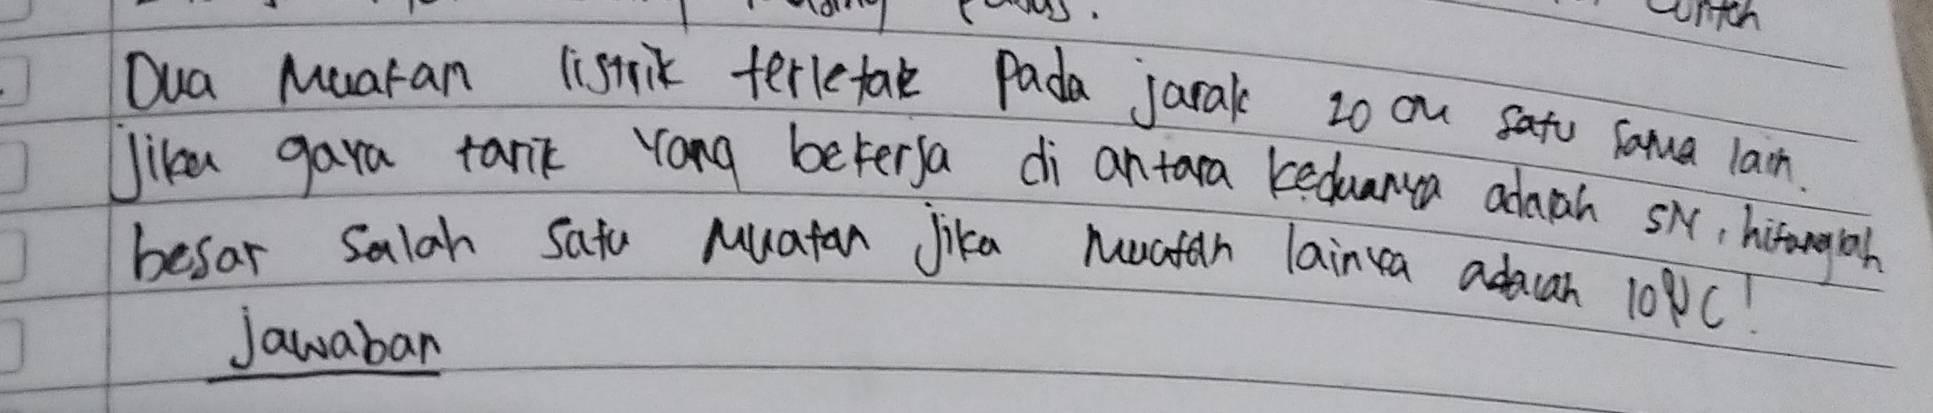 Dua Muatan listrik terletak Pada jarak 20 cm satu sama lain.
Jika gaya tarik yang bekerja di antara keduanya adalah 5N, hitunglah
besar salah satu Muatan jika Muatan lainya adalah 10 μC!
Jawaban